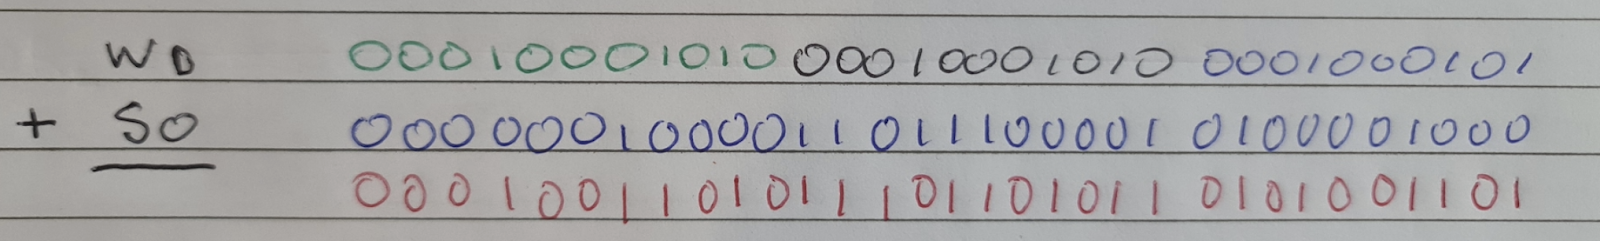 W0 00010001010 00010001010 0001000101
+ S0 0000001000011011100001 0100001000
0001001101011101101011 0101001101